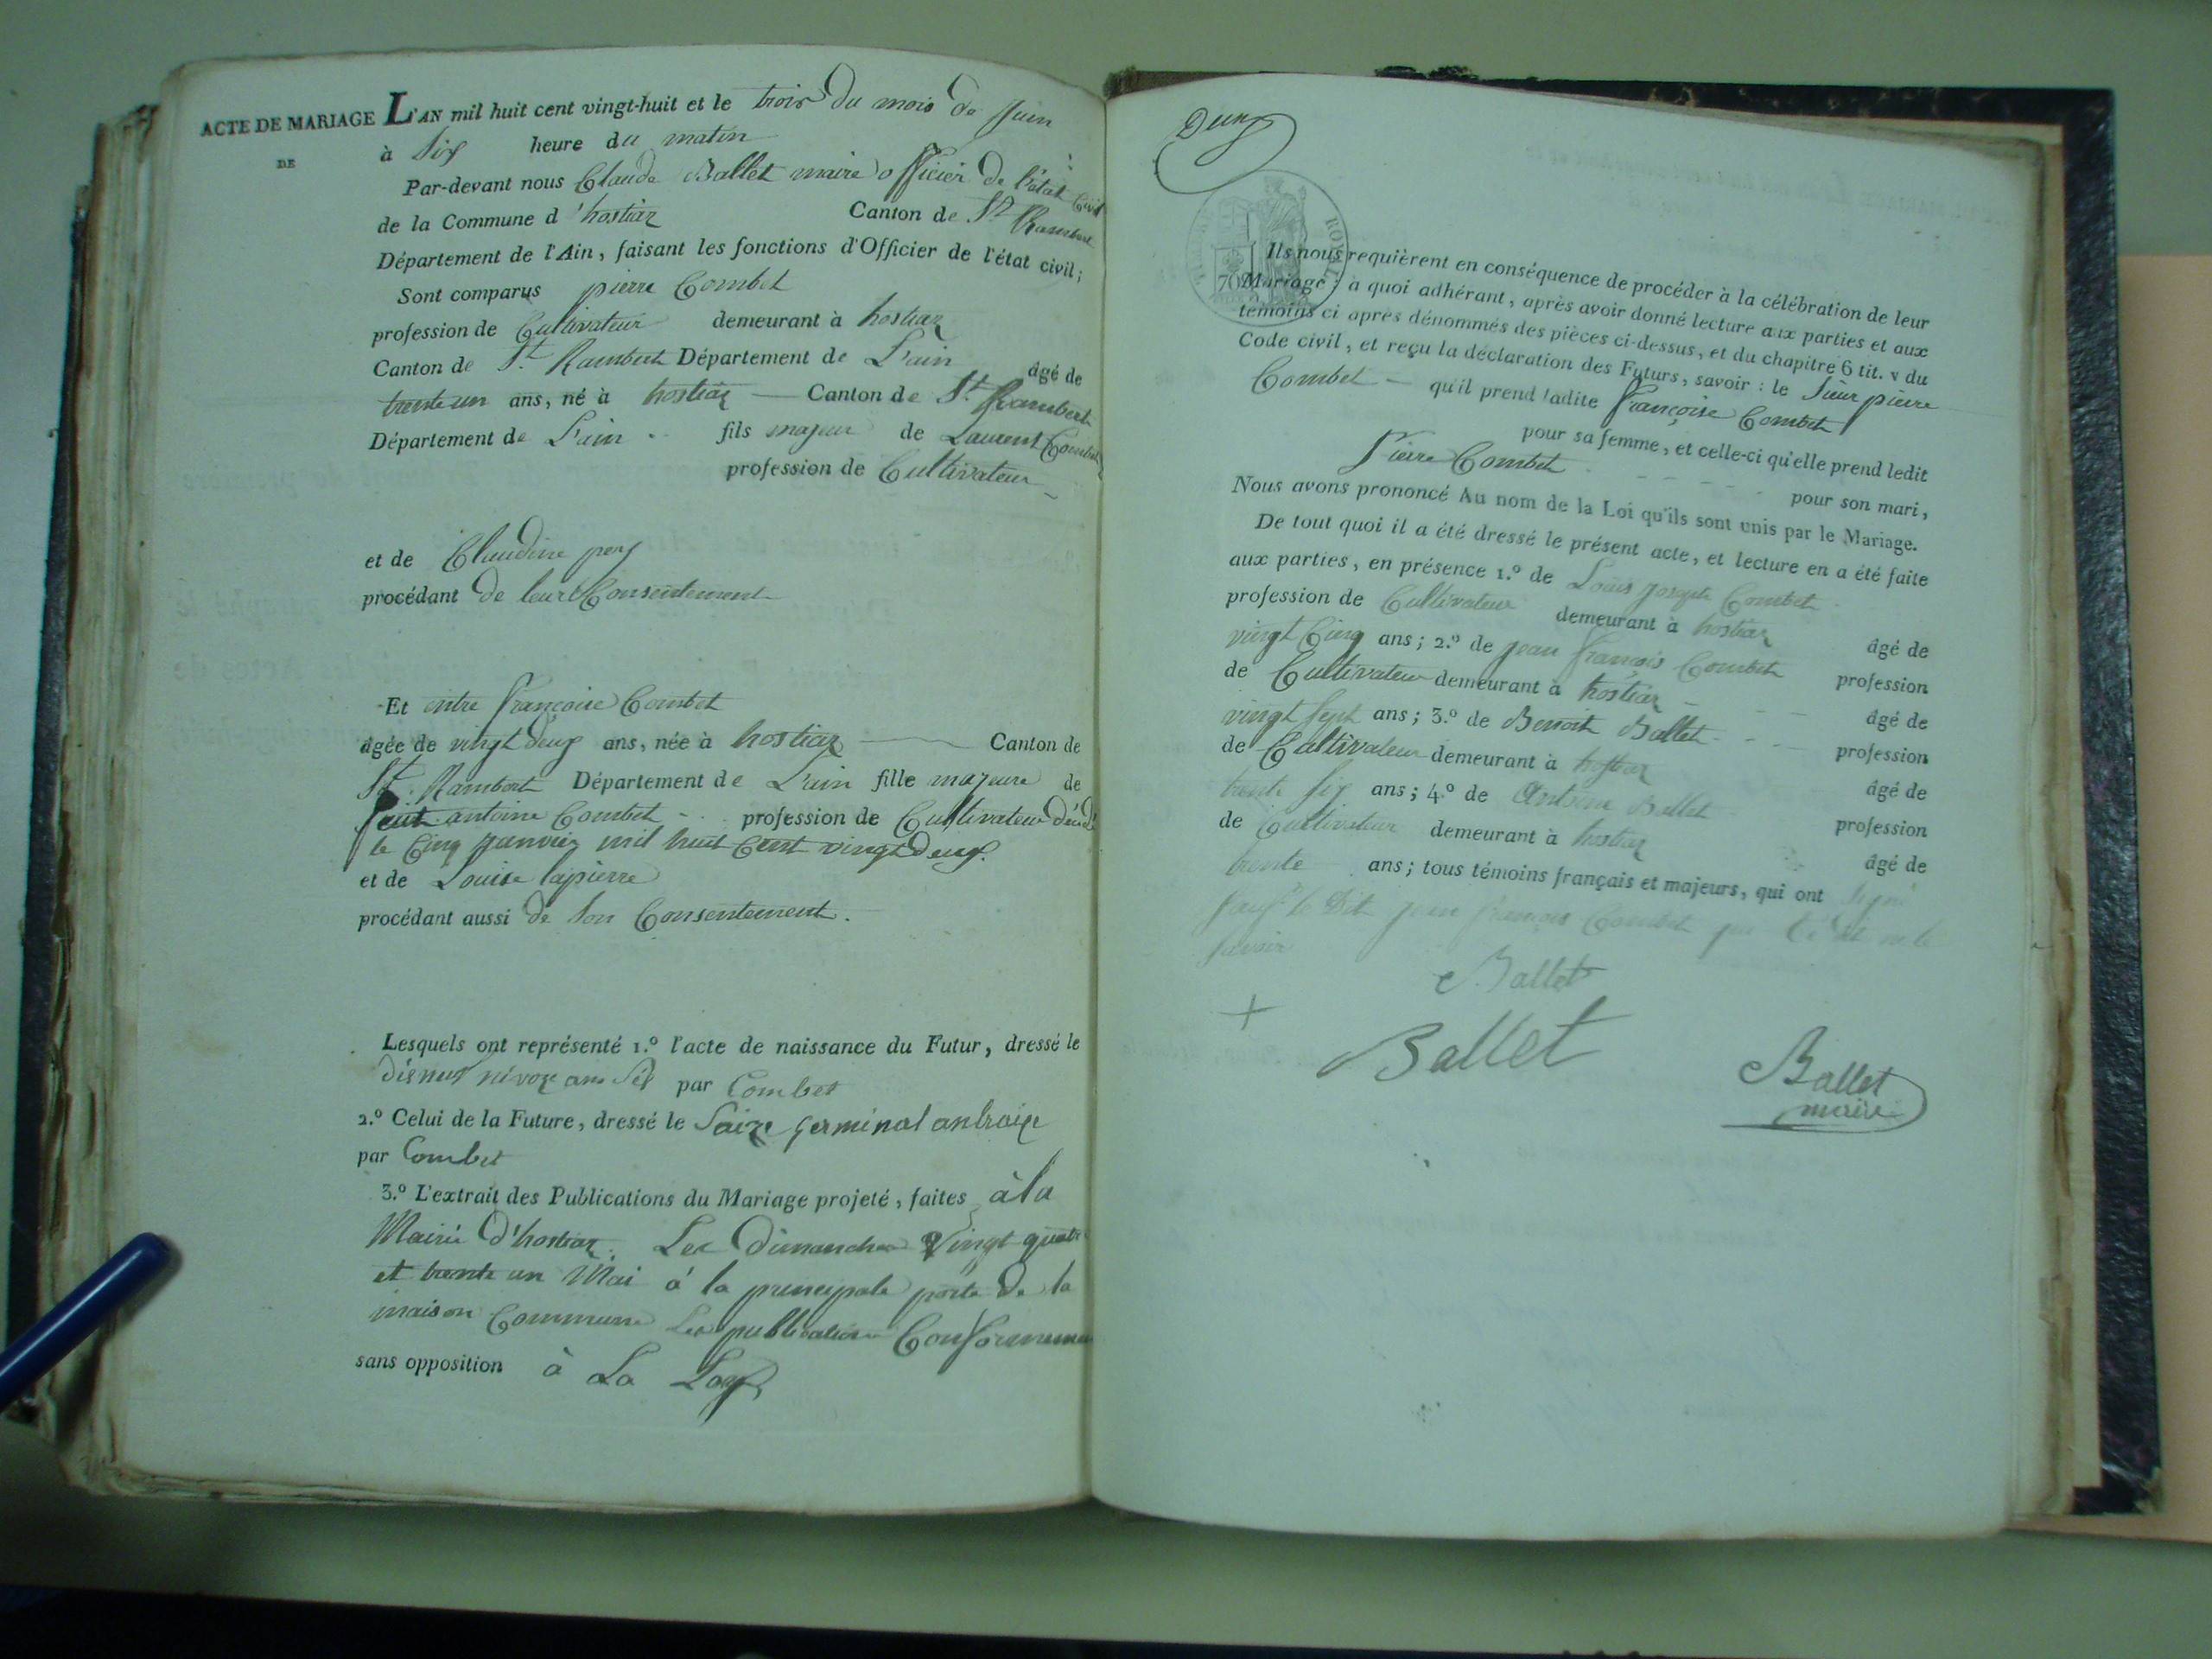 ACTE DE MARIAGE
DE
L'AN mil huit cent vingt-huit et le trois du mois de juin
à six heure du matin
Par-devant nous Claude Ballet maire officier de l'état civil
de la Commune d'hostiaz Canton de St Rambert
Département de l'Ain, faisant les fonctions d'Officier de l'état civil;
Sont comparus pierre Combet
profession de Cultivateur demeurant à hostiaz
Canton de St. Rambert Département de L'ain âgé de
trente un ans, né à hostiaz Canton de St. Rambert
Département de L'ain fils majeur de Laurent Combet
profession de Cultivateur
et de Claudine
procédant de leur Consentement
Et entre françoise Combet
âgée de vingt deux ans, née à hostiaz Canton de
St. Rambert Département de L'ain fille majeure de
antoine Combet profession de Cultivateur
le cinq janvier mil huit cent vingt deux.
et de Louise lapierre
procédant aussi de son Consentement.
Lesquels ont représenté 1.º l'acte de naissance du Futur, dressé le
nivoze par Combet
2.º Celui de la Future, dressé le Saize germinal
par Combet
3.º L'extrait des Publications du Mariage projeté, faites à la
Mairie d'hostiaz. Les dimanches vingt quatre
et trente un Mai à la principale porte de la
maison Commune Les publications
sans opposition à La Loy
Ils nous requièrent en conséquence de procéder à la célébration de leur
Mariage; à quoi adhérant, après avoir donné lecture aux parties et aux
témoins ci après dénommés des pièces ci-dessus, et du chapitre 6 tit. v du
Code civil, et reçu la déclaration des Futurs, savoir: le Sieur pierre
Combet qu'il prend ladite françoise Combet
pour sa femme, et celle-ci qu'elle prend ledit
Pierre Combet pour son mari,
Nous avons prononcé Au nom de la Loi qu'ils sont unis par le Mariage.
De tout quoi il a été dressé le présent acte, et lecture en a été faite
aux parties, en présence 1.º de Louis joseph Combet
profession de Cultivateur demeurant à hostiaz âgé de
vingt Cinq ans; 2.º de jean françois Combet profession
de Cultivateur demeurant à hostiaz âgé de
vingt sept ans; 3.º de Benoit Ballet profession
de Cultivateur demeurant à hostiaz âgé de
trente six ans; 4.º de Antoine Ballet profession
de Cultivateur demeurant à hostiaz âgé de
trente ans; tous témoins français et majeurs, qui ont signé
le dit jean françois Combet
savoir
Ballet
Ballet
Ballet
maire